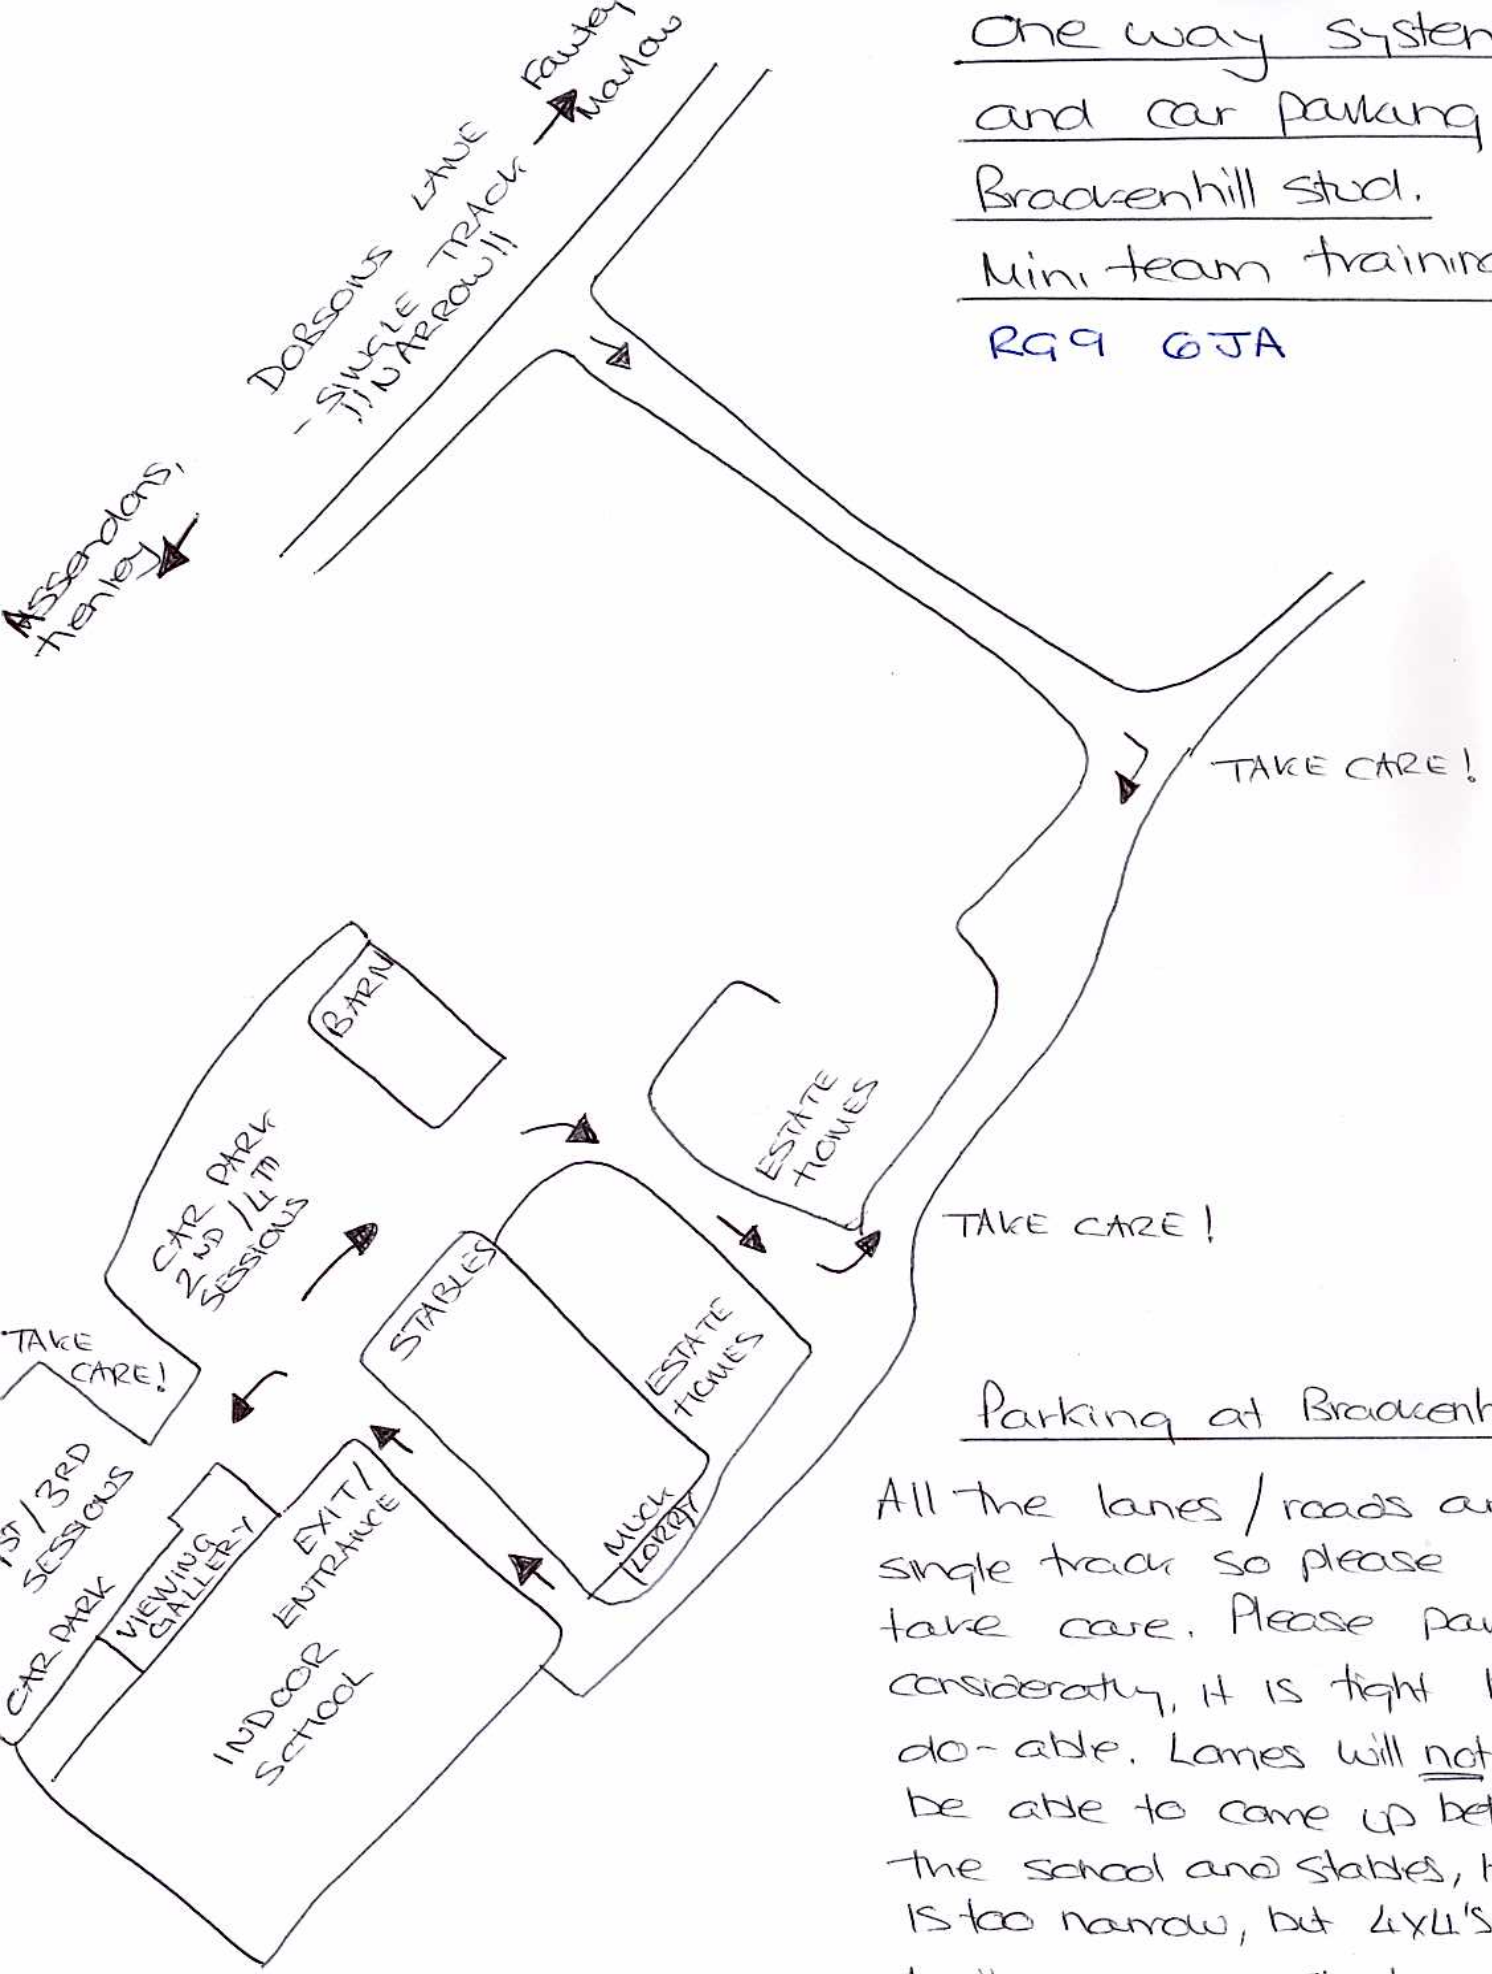 One way system
and car parking
Brackenhill stud.
Mini team training
RG9 6JA
Fawley
Marlow
DOBSONS LANE
- SINGLE TRACK
!!NARROW!!
Assendons,
Henley
TAKE CARE!
BARN
ESTATE
HOMES
CAR PARK
2ND/4TH
SESSIONS
TAKE CARE!
STABLES
ESTATE
HOMES
TAKE
CARE!
MUCK
LORRY
1ST/3RD
SESSIONS
CAR PARK
VIEWING
GALLERY
EXIT/
ENTRANCE
INDOOR
SCHOOL
Parking at
All the lanes/roads
single track so please
take care. Please
considerately, it is tight
do-able. Lorries will not
be able to come up
the school and stables,
is too narrow, but 4x4's